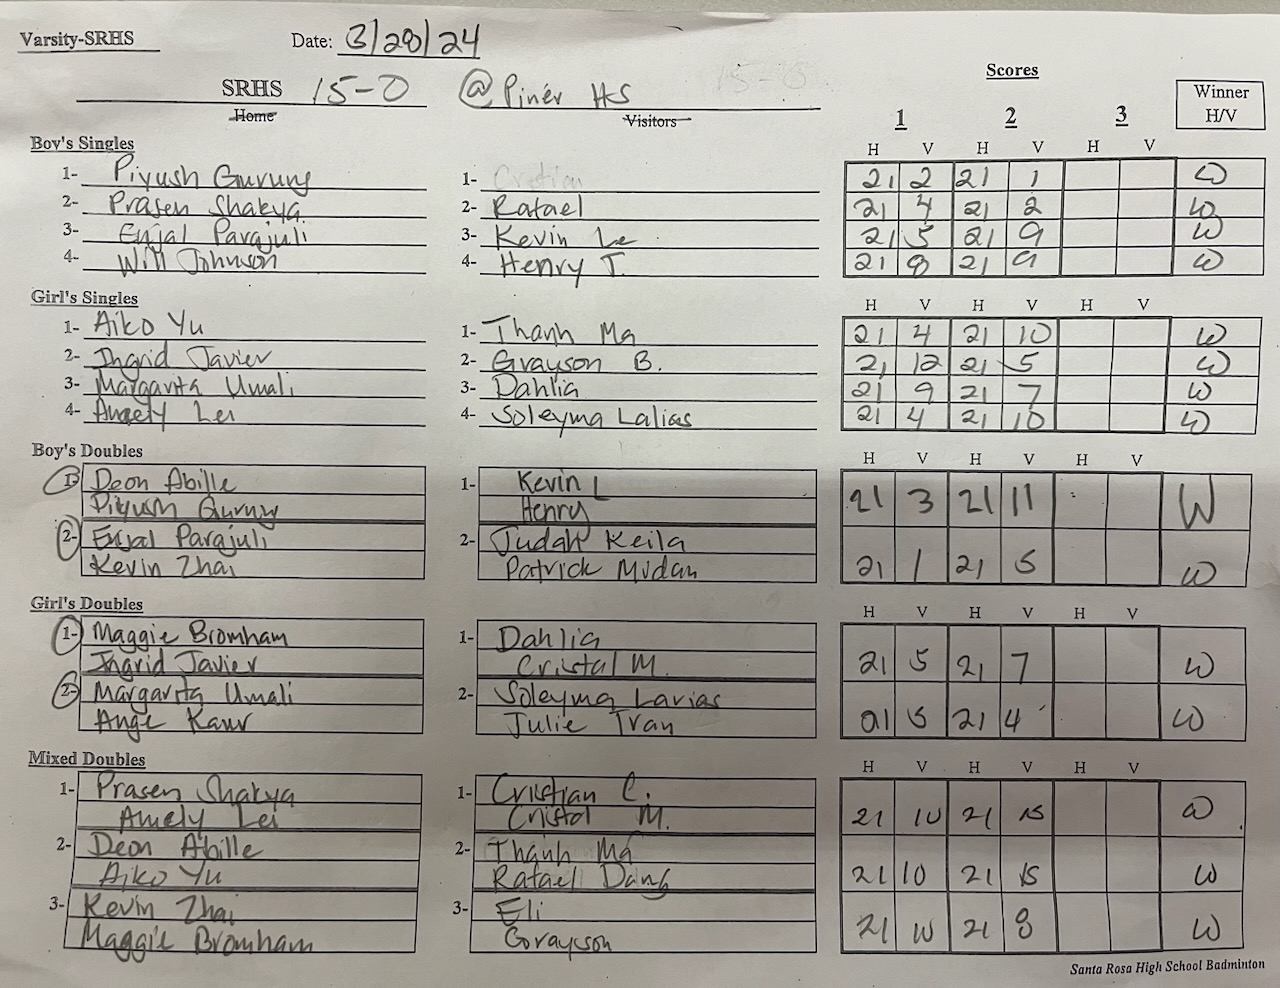 Varsity-SRHS Date: 3/28/24
SRHS 15-0 @ Piner HS
Home Visitors
Scores
1 2 3 Winner H/V
H V H V H V
Boy's Singles
1- Piyush Gurung 1- Cristian 21 2 21 1 W
2- Prasen Shakya 2- Rafael 21 4 21 2 W
3- Enjal Parajuli 3- Kevin Le 21 5 21 9 W
4- Will Johnson 4- Henry T. 21 8 21 9 W
Girl's Singles H V H V H V
1- Aiko Yu 1- Thanh Ma 21 4 21 10 W
2- Ingrid Javier 2- Grayson B. 21 12 21 5 W
3- Margarita Umali 3- Dahlia 21 9 21 7 W
4- Lei 4- Soleyma Lalias 21 4 21 10 W
Boy's Doubles H V H V H V
1- Deon Abille 1- Kevin L 21 3 21 11 W
Piyush Gurung Henry
2- Enjal Parajuli 2- Judah Keila 21 1 21 5 W
Kevin Zhai Patrick Mudan
Girl's Doubles H V H V H V
1- Maggie Bromham 1- Dahlia 21 5 21 7 W
Ingrid Javier Cristal M.
2- Margarita Umali 2- Soleyma Larias 21 5 21 4 W
Ange Kaur Julie Tran
Mixed Doubles H V H V H V
1- Prasen Shakya 1- Cristian C. 21 10 21 15 W
Amely Lei Cristal M.
2- Deon Abille 2- Thanh Ma 21 10 21 15 W
Aiko Yu Rafael Dang
3- Kevin Zhai 3- Eli 21 10 21 8 W
Maggie Bromham Grayson
Santa Rosa High School Badminton